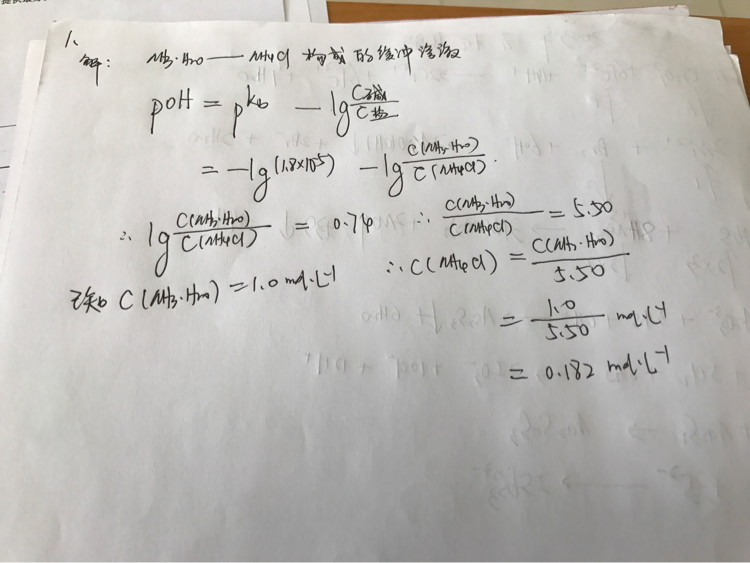 1.
解: NH3·H2O — NH4Cl 构成的缓冲溶液
pOH = pKb - lg C弱碱/C盐
= -lg(1.8×10^-5) - lg C(NH3·H2O)/C(NH4Cl).
∴ lg C(NH3·H2O)/C(NH4Cl) = 0.74 ∴ C(NH3·H2O)/C(NH4Cl) = 5.50
已知 C(NH3·H2O) = 1.0 mol·L-1 ∴ C(NH4Cl) = C(NH3·H2O)/5.50
= 1.0/5.50 mol·L-1
= 0.182 mol·L-1